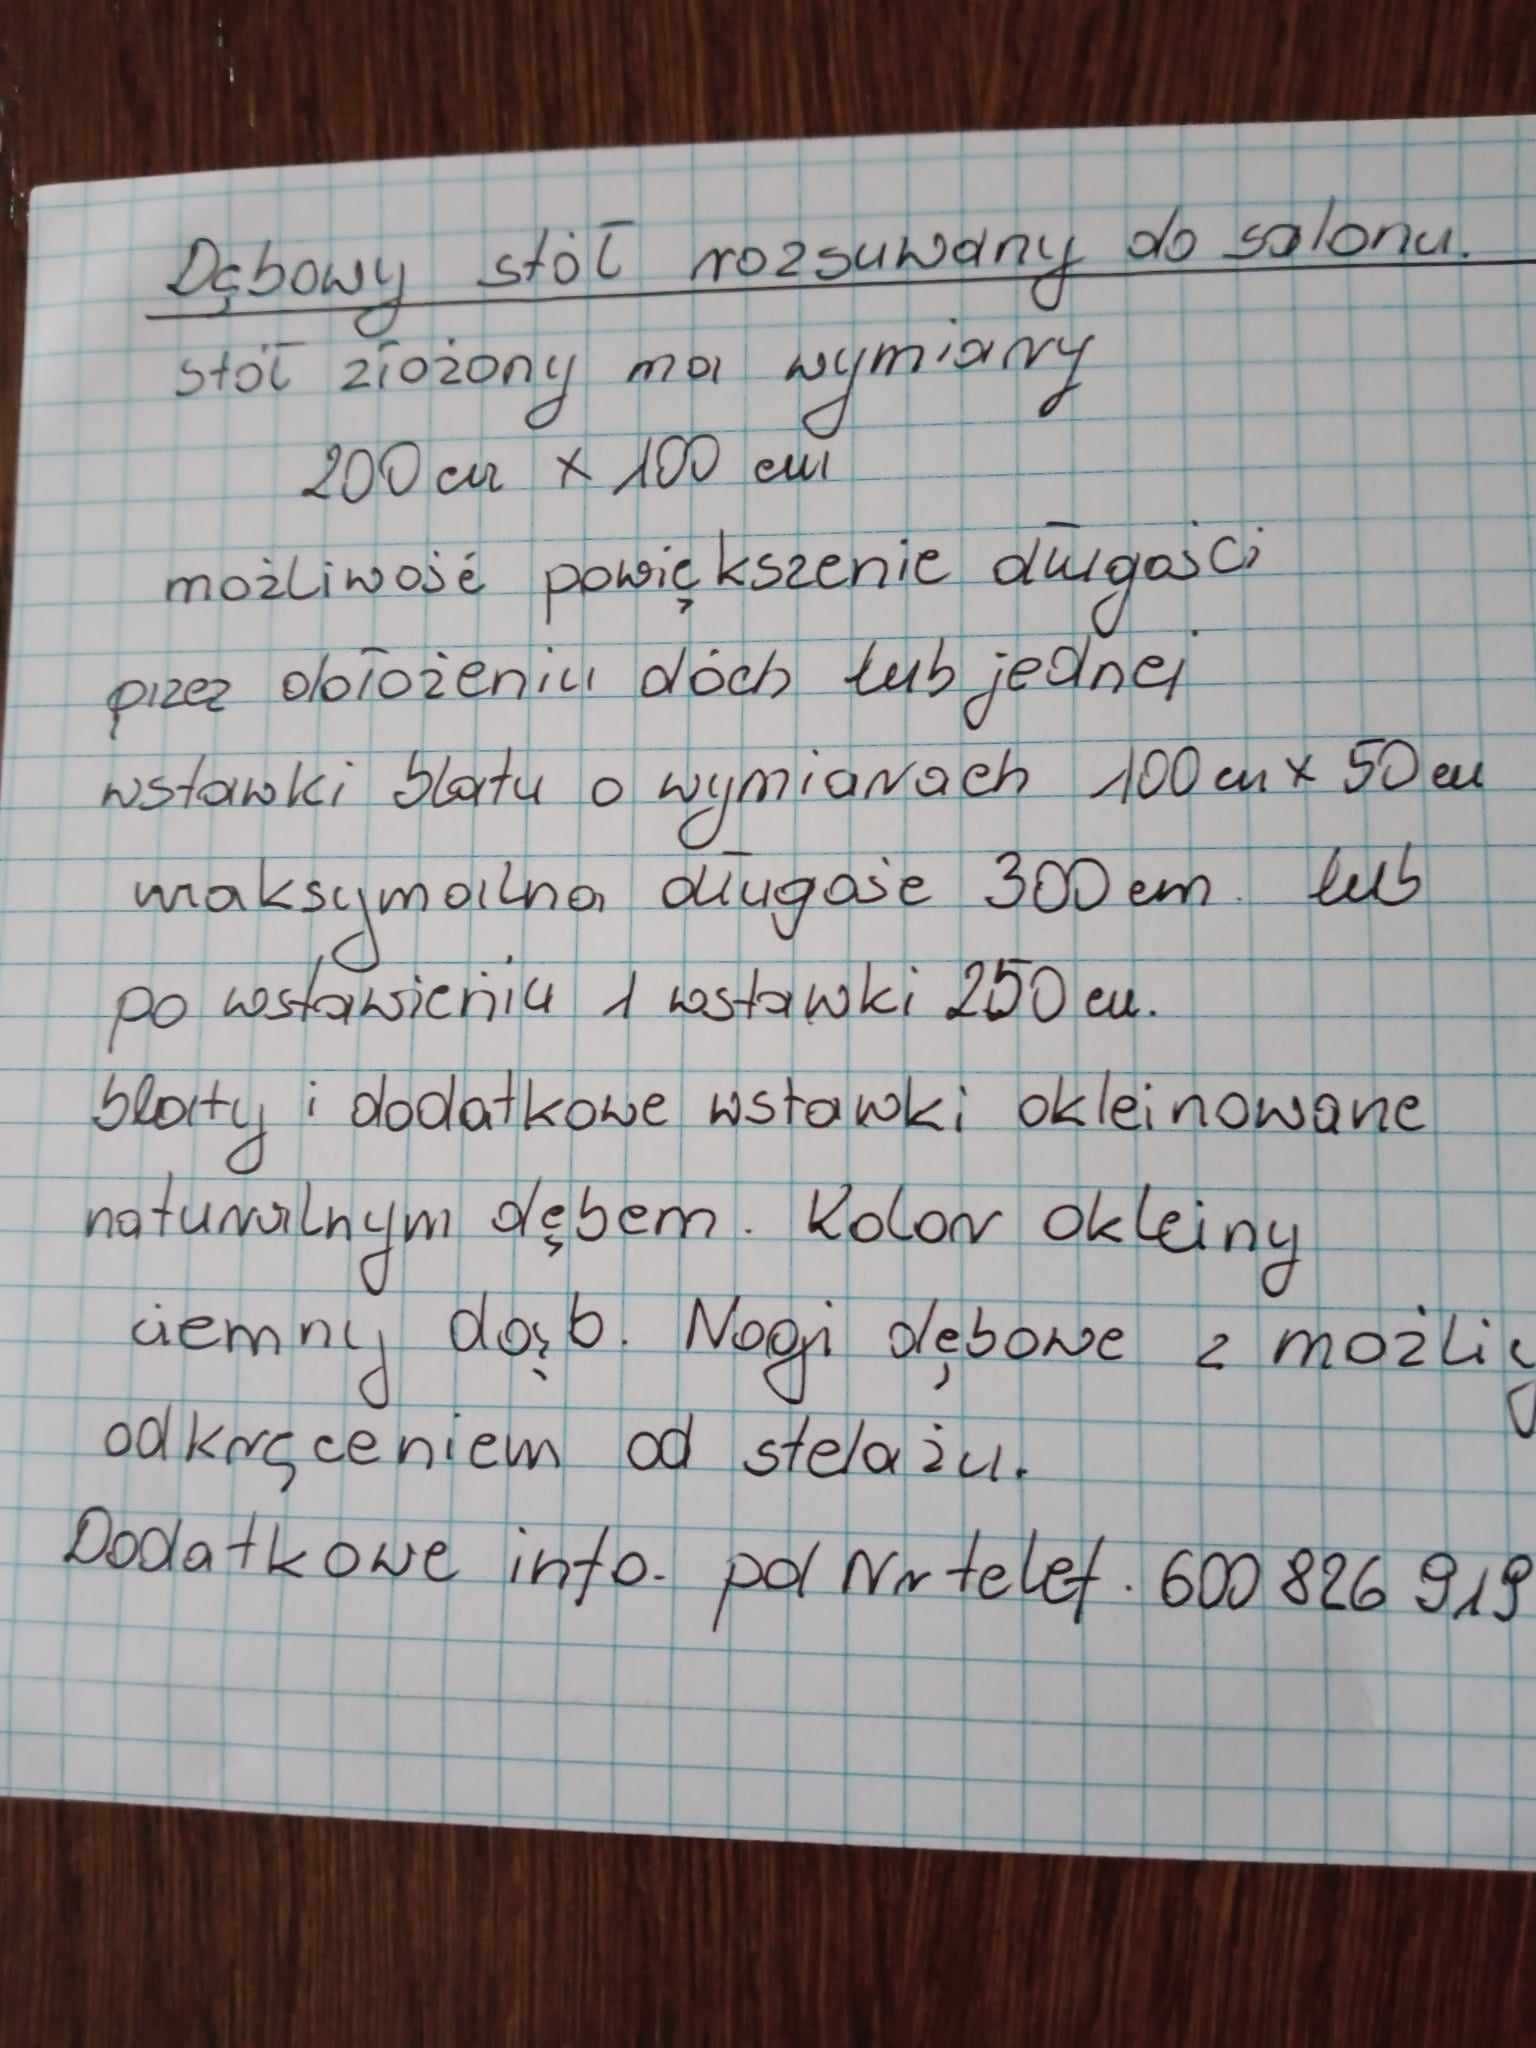 Dębowy stół rozsuwany do salonu.
stół złożony ma wymiary
200 cm x 100 cm
możliwość powiększenie długości
przez obłożeniu dóch lub jednej
wstawki blatu o wymiarach 100 cm x 50 cm
maksymalna długość 300 cm. lub
po wstawieniu 1 wstawki 250 cm.
blaty i dodatkowe wstawki okleinowane
naturalnym dębem. Kolor okleiny
ciemny dąb. Nogi dębowe z
odkręceniem od stelażu.
Dodatkowe info. pod Nr telef. 600 826 919